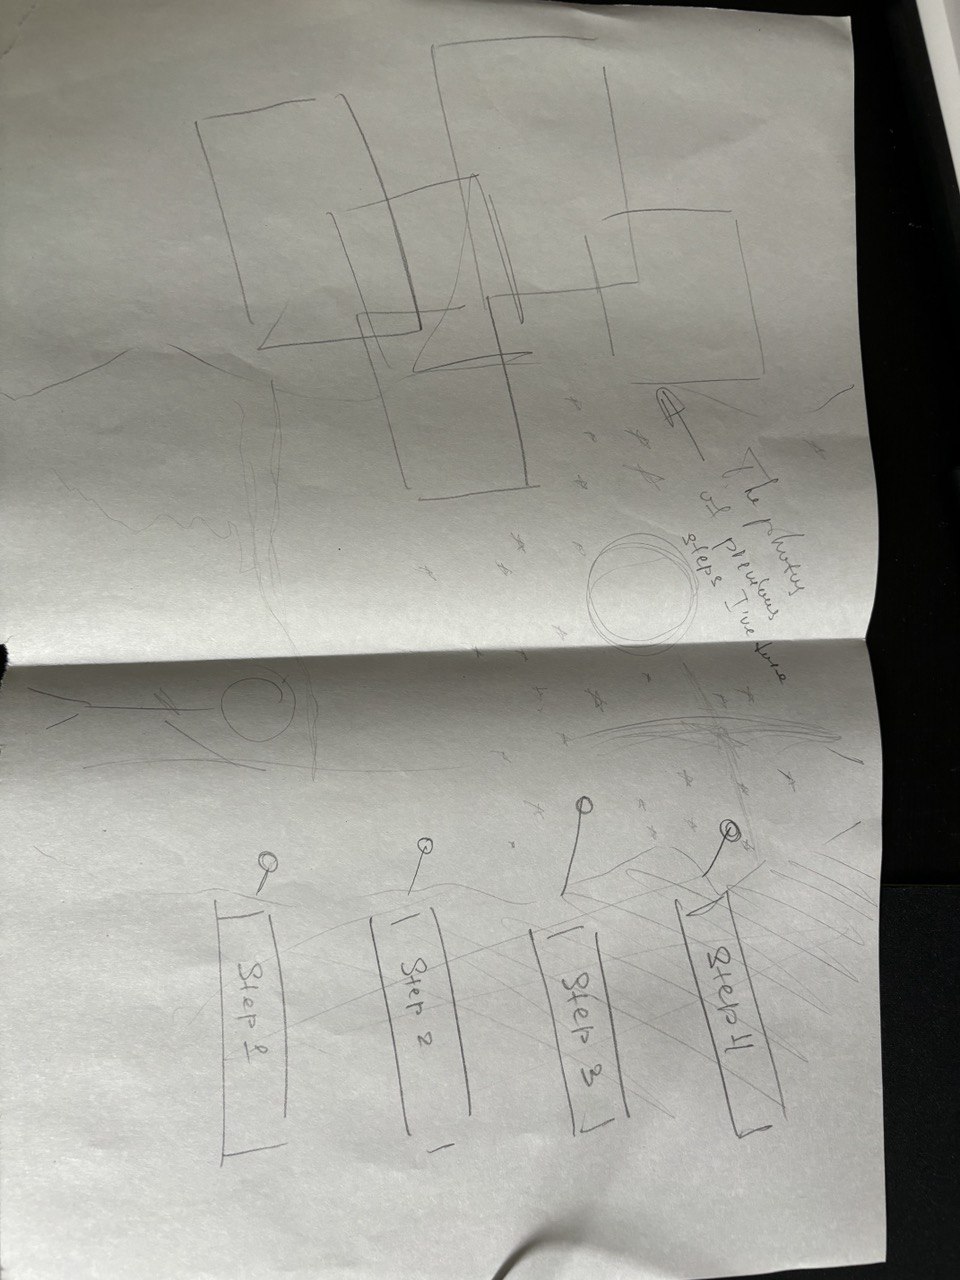 The photos
of previous
steps I've done
Step 4
Step 3
Step 2
Step 1